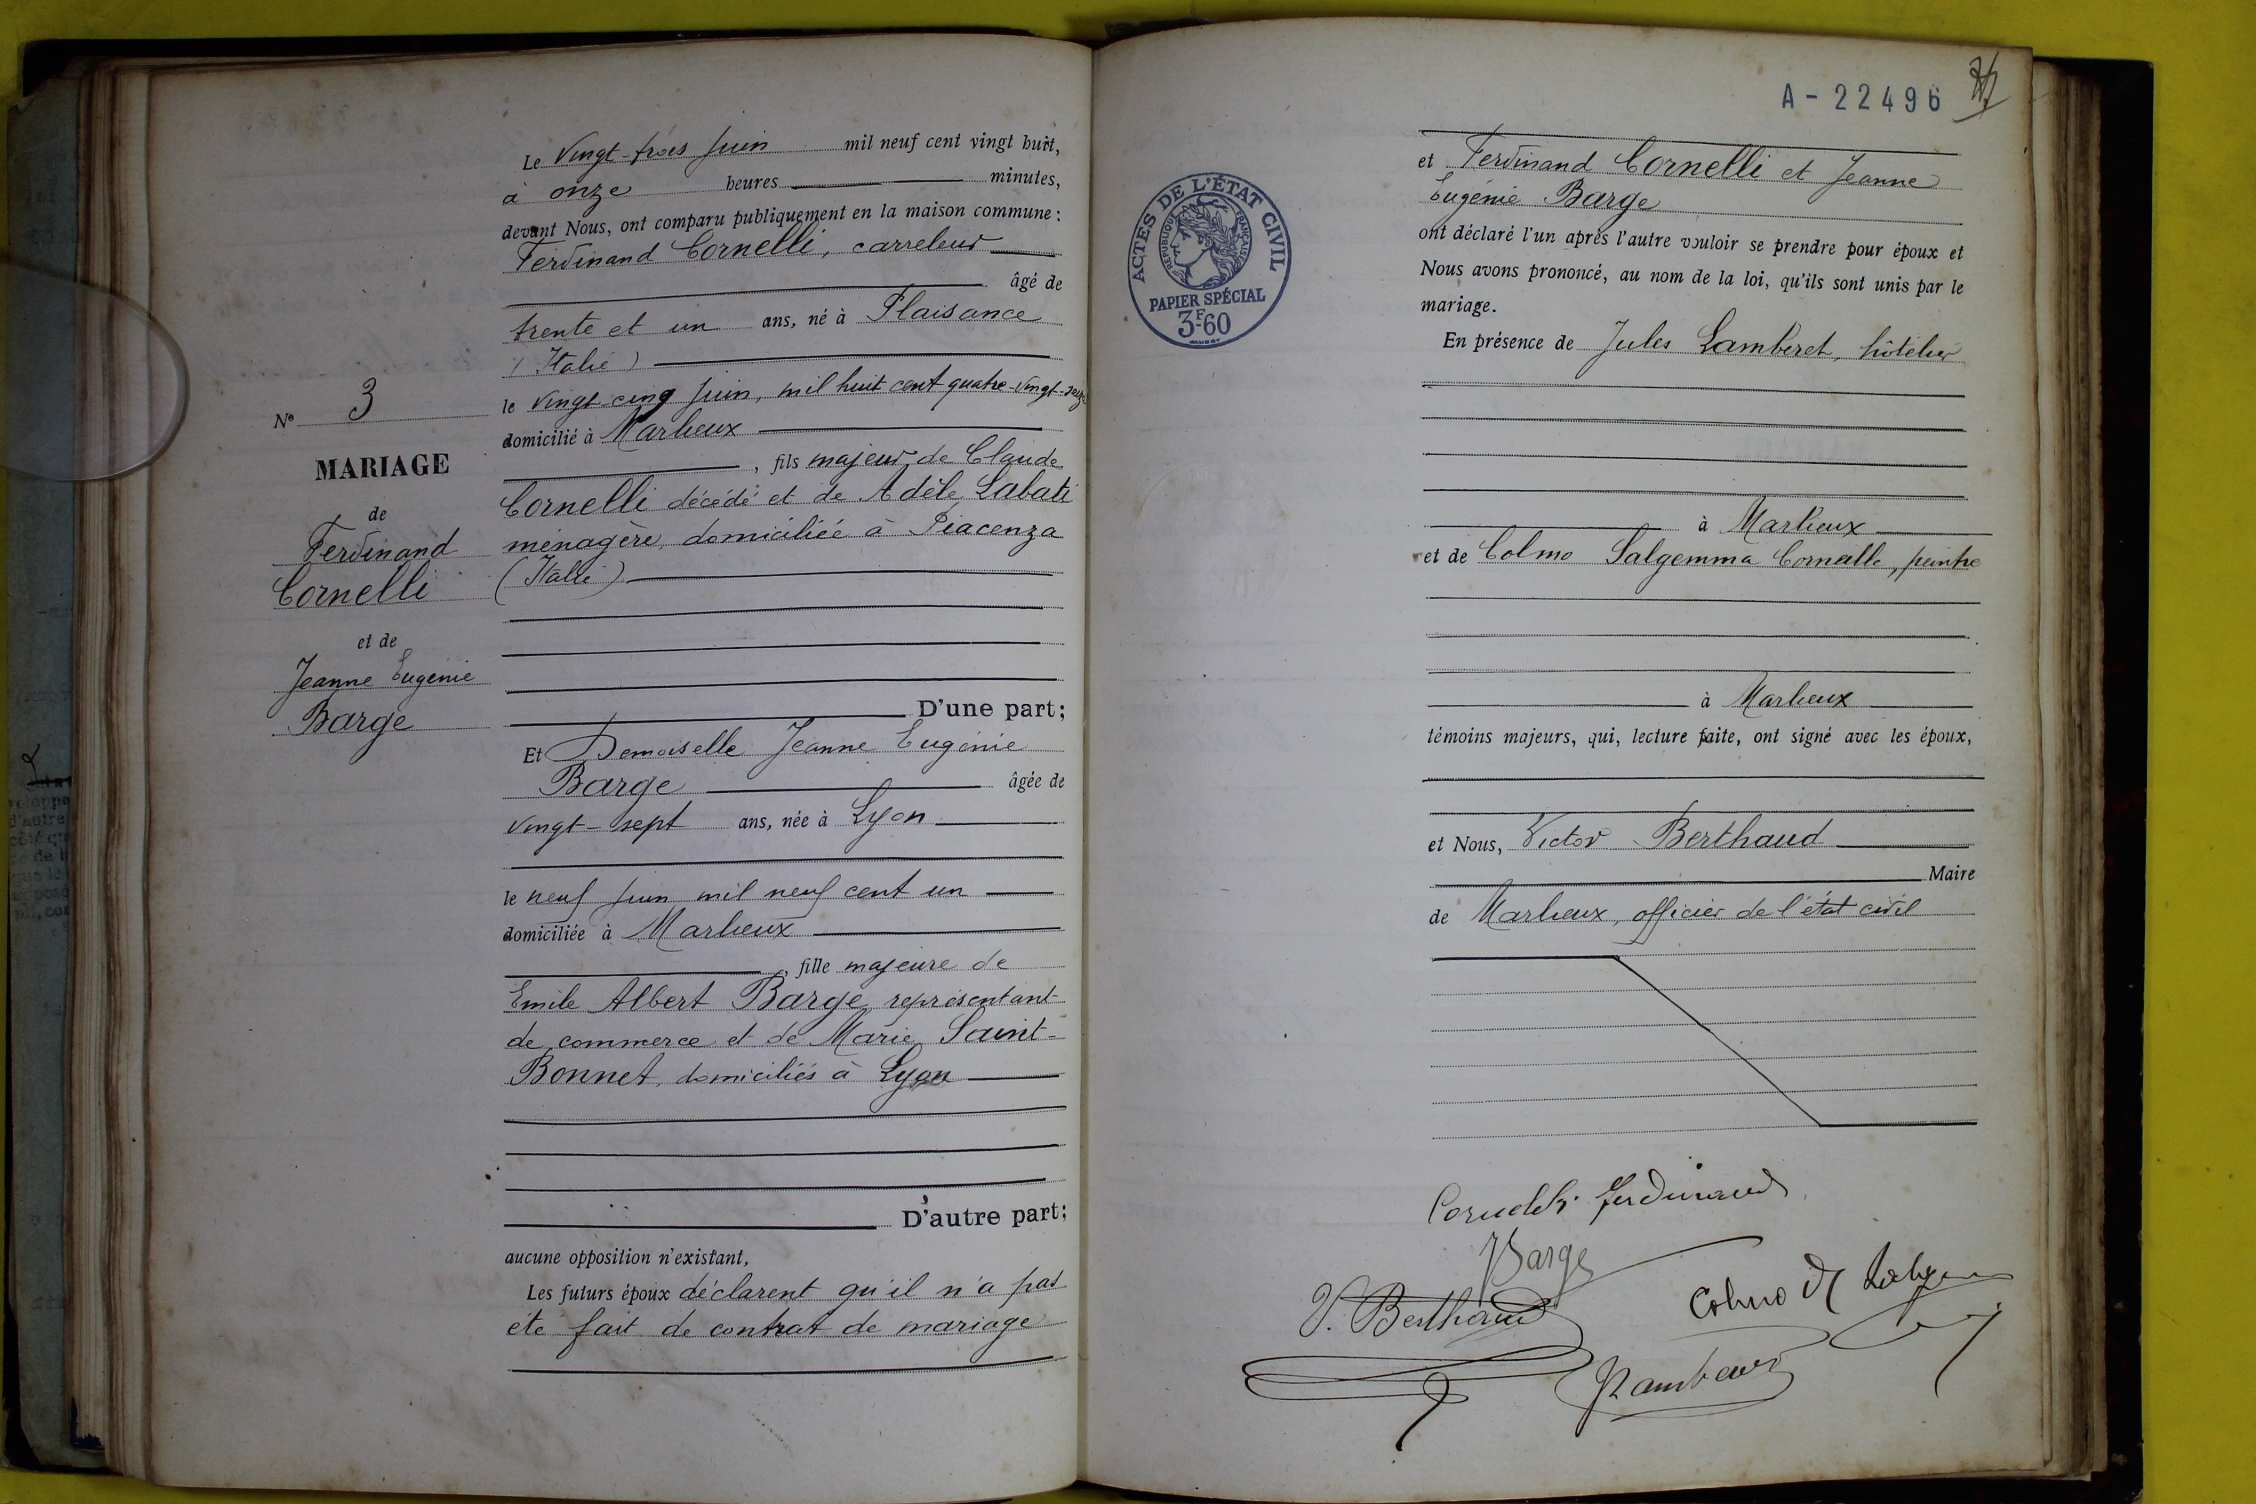 N° 3
MARIAGE
de
Ferdinand
Cornelli
et de
Jeanne Eugénie
Barge
Le vingt-trois juin mil neuf cent vingt huit,
à onze heures minutes,
devant Nous, ont comparu publiquement en la maison commune :
Ferdinand Cornelli, carreleur
âgé de
trente et un ans, né à Plaisance
(Italie)
le vingt-cinq juin, mil huit cent quatre-vingt-seize
domicilié à Marlieux
, fils majeur de Claude
Cornelli décédé et de Adèle Labati
ménagère, domiciliée à Piacenza
(Italie)
D'une part;
Et Demoiselle Jeanne Eugénie
Barge âgée de
vingt-sept ans, née à Lyon
le neuf juin mil neuf cent un
domiciliée à Marlieux
, fille majeure de
Emile Albert Barge, représentant
de commerce et de Marie Saint-
Bonnet, domiciliés à Lyon
D'autre part;
aucune opposition n'existant,
Les futurs époux déclarent qu'il n'a pas
été fait de contrat de mariage
A-22496
ACTES DE L'ÉTAT CIVIL
RÉPUBLIQUE FRANÇAISE
PAPIER SPÉCIAL
3F-60
et Ferdinand Cornelli et Jeanne
Eugénie Barge
ont déclaré l'un après l'autre vouloir se prendre pour époux et
Nous avons prononcé, au nom de la loi, qu'ils sont unis par le
mariage.
En présence de Jules Lamberet, hôtelier
à Marlieux
et de Colmo Salgemma Cornealle, peintre
à Marlieux
témoins majeurs, qui, lecture faite, ont signé avec les époux,
et Nous, Victor Berthaud
Maire
de Marlieux, officier de l'état civil
Cornelli Ferdinand
Barge
V. Berthaud
Colmo